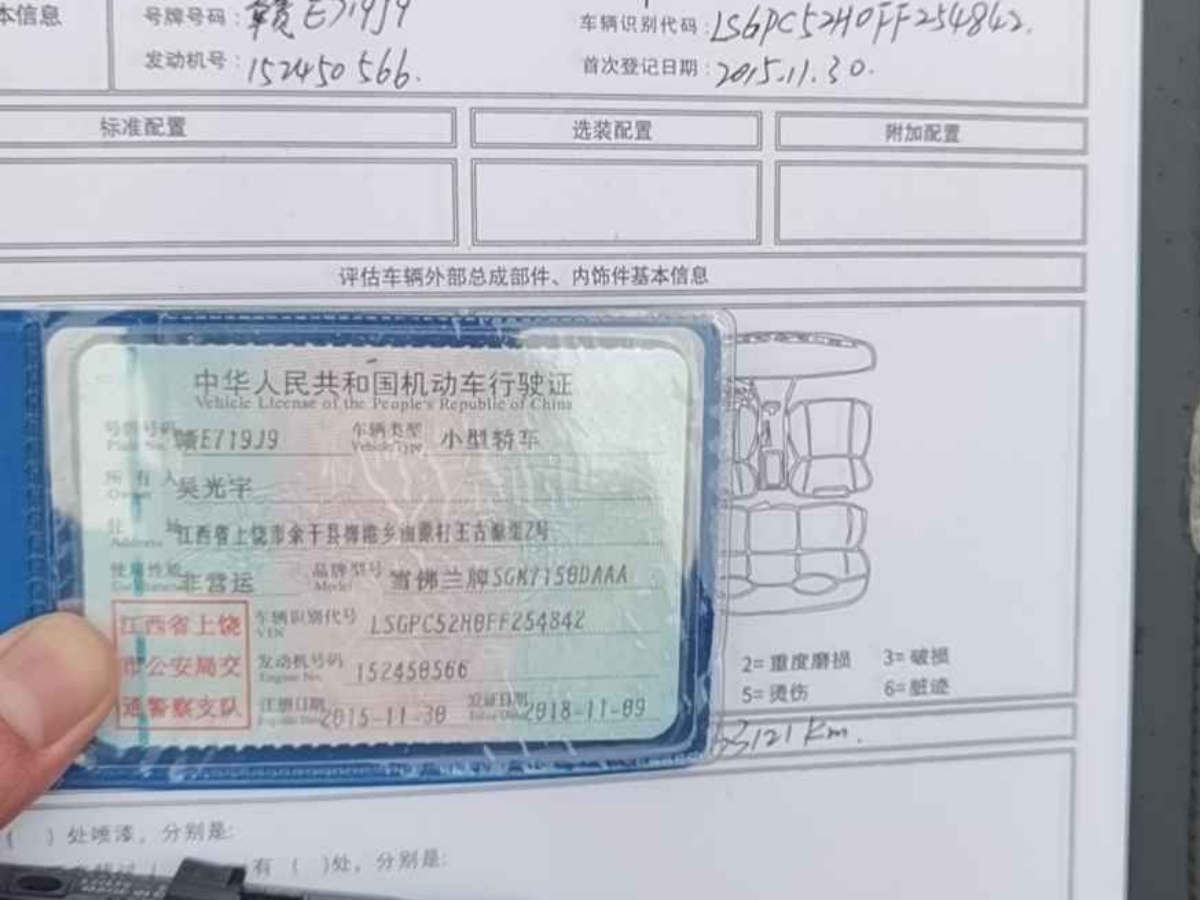 本信息
号牌号码：赣E719J9
车辆识别代码：LSGPC52H0FF254842.
发动机号：152450566.
首次登记日期：2015.11.30.
标准配置
选装配置
附加配置
评估车辆外部总成部件、内饰件基本信息
中华人民共和国机动车行驶证
Vehicle License of the People's Republic of China
号牌号码 赣E719J9
车辆类型 小型轿车
Vehicle Type
所有人 吴光宇
Owner
住址 江西省上饶市余干县
Address
使用性质 非营运
品牌型号 雪佛兰牌SGK7150DAAA
Model
江西省上饶
市公安局交
通警察支队
车辆识别代号 LSGPC52H0FF254842
VIN
发动机号码 152450566
Engine No.
注册日期 2015-11-30
发证日期 2018-11-09
2=重度磨损 3=破损
5=烫伤 6=脏迹
63121 Km.
( )处喷漆，分别是:
有( )处，分别是: